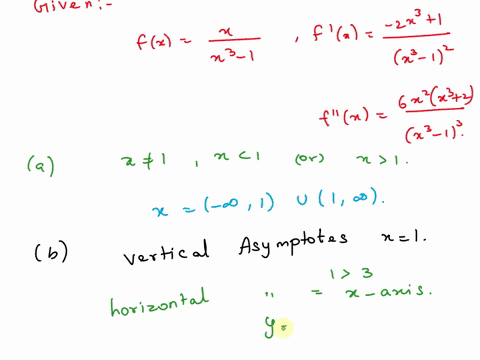 Given:-
f(x) = x / (x³-1) , f'(x) = (-2x³+1) / (x³-1)²
f''(x) = 6x²(x³+2) / (x³-1)³.
(a) x ≠ 1 , x < 1 (or) x > 1.
x = (-∞, 1) ∪ (1, ∞).
(b) Vertical Asymptotes x = 1.
1 > 3
horizontal " = x-axis.
y =